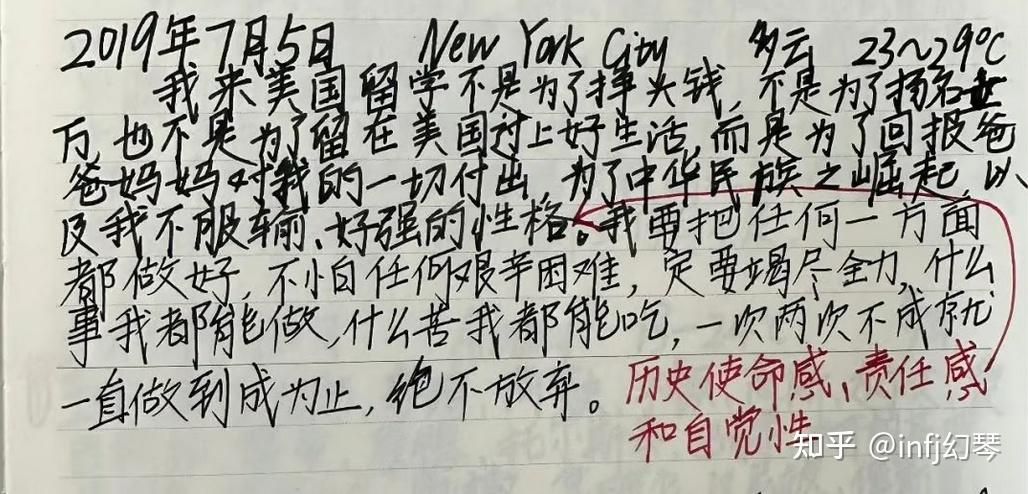 2019年7月5日 New York City 多云 23~29℃
我来美国留学不是为了挣大钱,不是为了扬名立
万,也不是为了留在美国过上好生活,而是为了回报爸
爸妈妈对我的一切付出,为了中华民族之崛起,以
及我不服输、好强的性格。我要把任何一方面
都做好,不怕任何艰辛困难,一定要竭尽全力,什么
事我都能做,什么苦我都能吃,一次两次不成就
一直做到成为止,绝不放弃。
历史使命感、责任感
和自觉性
知乎 @infj幻琴